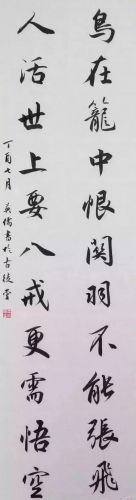 鳥在籠中恨関羽不能張飛
人活世上要八戒更需悟空
丁酉七月 英倫書於古越堂